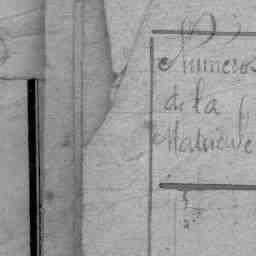 Numeros
de la
Matrice